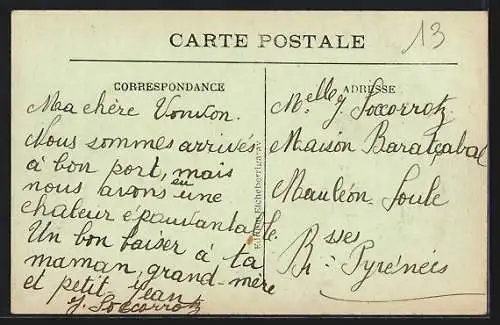 CARTE POSTALE
13
CORRESPONDANCE
Ma chère Vonvon.
Nous sommes arrivés
à bon port, mais
nous avons eu une
chaleur épouvantable.
Un bon baiser à ta
maman, grand-mère
et petit-Jean
J. Soccorrotz
ADRESSE
Melle J. Soccorrotz
Maison Baratçabal
Mauléon. Soule
Bsses Pyrénées